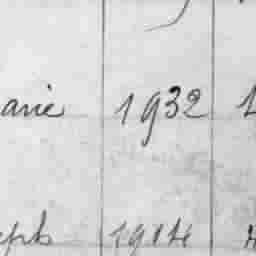 arie 1932
eph 1914